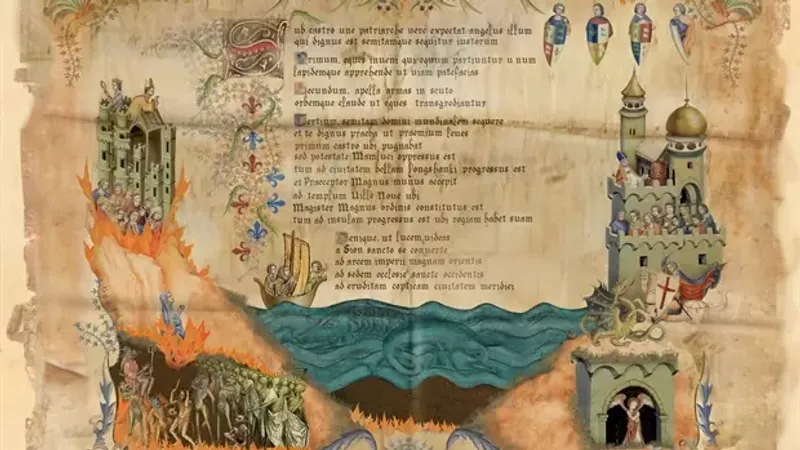 Sub castro une patriarche vere expectat angelus illum
qui dignus est semitamque sequitur iustorum
Primum, eques inveni qui equum partiuntur unum
lapidemque apprehende ut viam patefacias
Secundum, apella armas in scuto
orbemque claude ut eques transgrediantur
Tertium, semitam domini mundinalem sequere
et te dignus praeba ut praemium leves
primum castro ubi pugnabat
sed potestate Mamluci oppressus est
tum ad civitatem bellam longshanki progressus est
et Praeceptor Magnus munus accepit
ad templum Ville Nove ubi
Magister Magnus ordinis constitutus est
tum ad insulam progressus est ubi regiam habet suam
Denique, ut lucem videas
a Sion sancto se converte
ad arcem imperii magnam orientis
ad sedem ecclesie sancte occidentis
ad eruditam copticam civitatem meridiei